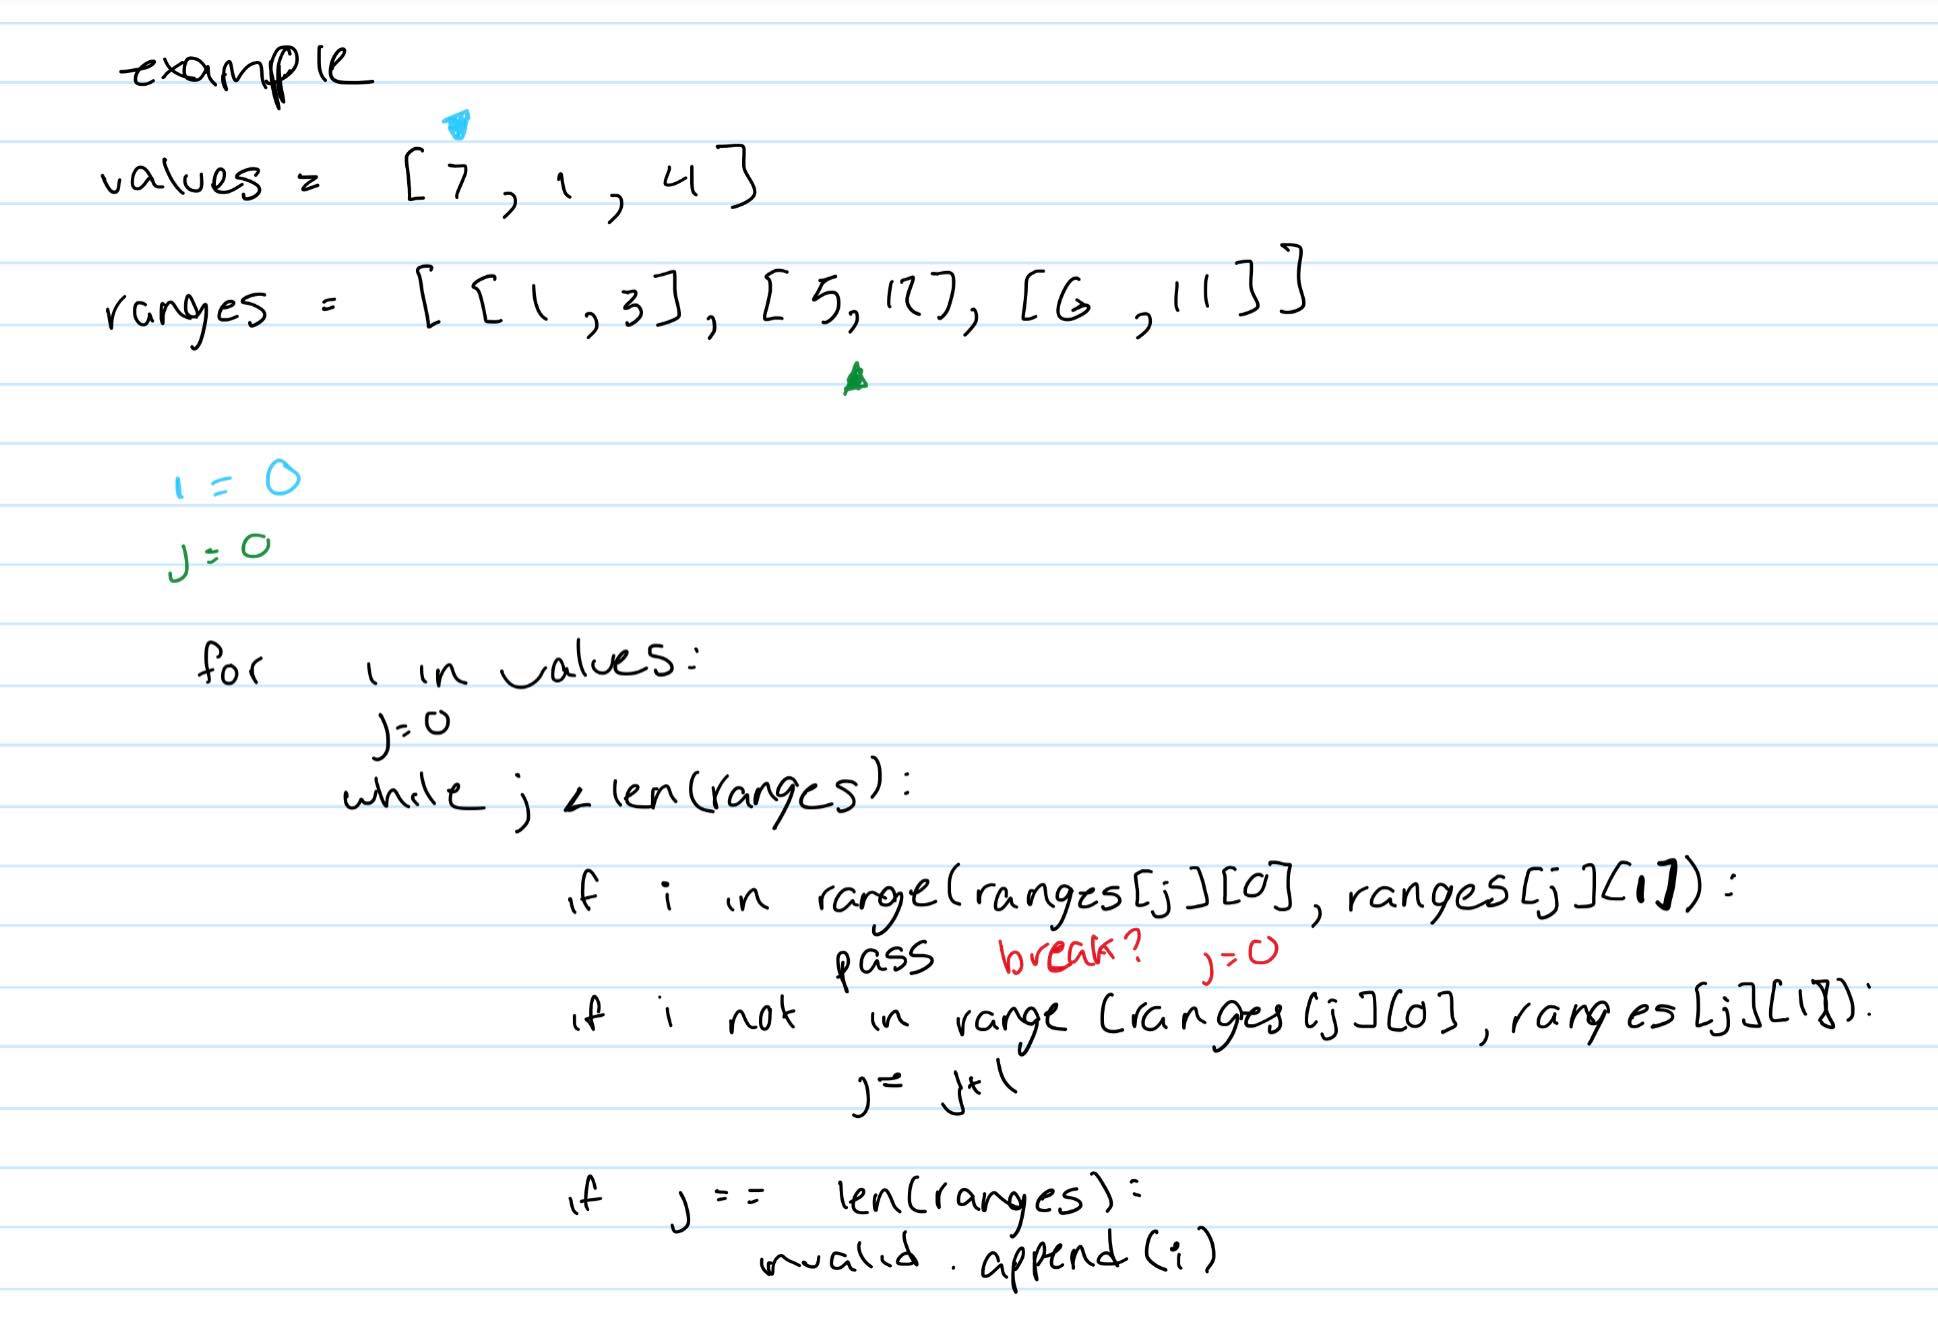 example
values = [7, 1, 4]
ranges = [[1, 3], [5, 12], [6, 11]]
i = 0
j = 0
for i in values:
j=0
while j < len(ranges):
if i in range(ranges[j][0], ranges[j][1]):
pass break? j=0
if i not in range (ranges[j][0], ranges[j][1]):
j = j+1
if j == len(ranges):
invalid.append(i)